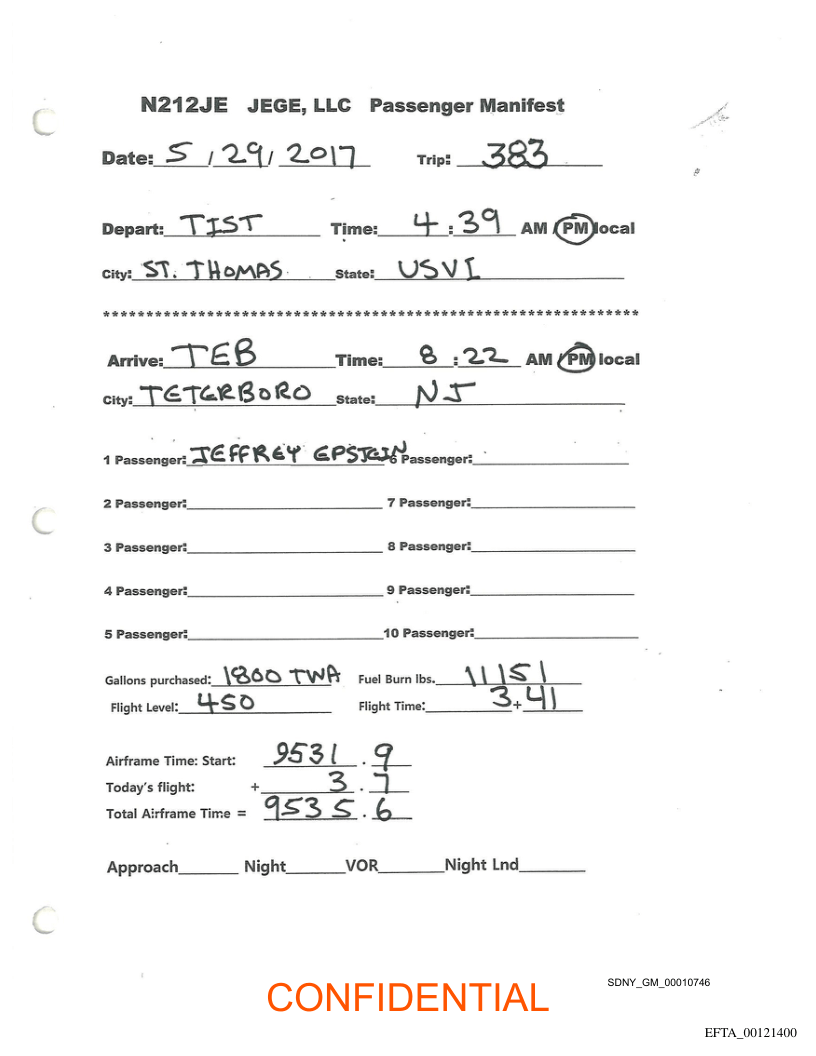 N212JE JEGE, LLC Passenger Manifest
Date: 5 / 29 / 2017 Trip: 383
Depart: TIST Time: 4 : 39 AM / PM local
City: ST. THOMAS State: USVI
****************************************************************
Arrive: TEB Time: 8 : 22 AM / PM local
City: TETERBORO State: NJ
1 Passenger: JEFFREY EPSTEIN 6 Passenger:
2 Passenger: 7 Passenger:
3 Passenger: 8 Passenger:
4 Passenger: 9 Passenger:
5 Passenger: 10 Passenger:
Gallons purchased: 1800 TWA Fuel Burn lbs. 11151
Flight Level: 450 Flight Time: 3 + 41
Airframe Time: Start: 9531 . 9
Today's flight: + 3 . 7
Total Airframe Time = 9535 . 6
Approach Night VOR Night Lnd
SDNY_GM_00010746
CONFIDENTIAL
EFTA_00121400